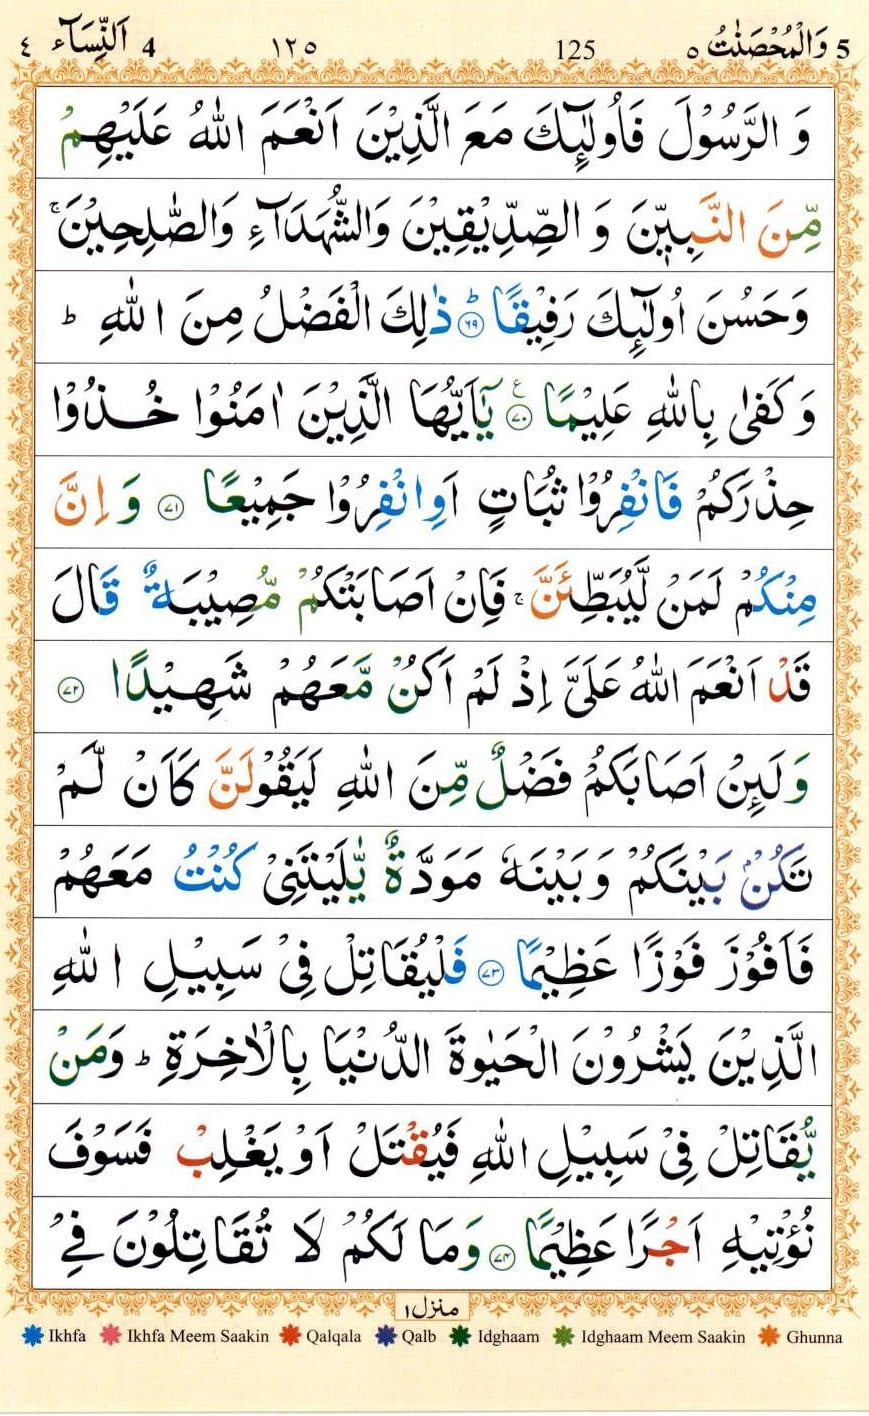 5 وَالْمُحْصَنٰتُ ٥ 125 ١٢٥ 4 اَلنِّسَآء ٤
وَ الرَّسُوْلَ فَاُولٰٓئِكَ مَعَ الَّذِيْنَ اَنْعَمَ اللّٰهُ عَلَيْهِمْ
مِّنَ النَّبِيّٖنَ وَ الصِّدِّيْقِيْنَ وَالشُّهَدَآءِ وَالصّٰلِحِيْنَ ۚ
وَحَسُنَ اُولٰٓئِكَ رَفِيْقًا ؕ ﴿٦٩﴾ ذٰلِكَ الْفَضْلُ مِنَ اللّٰهِ ؕ
وَكَفٰى بِاللّٰهِ عَلِيْمًا ﴿٧٠﴾ ع يٰۤاَيُّهَا الَّذِيْنَ اٰمَنُوْا خُذُوْا
حِذْرَكُمْ فَانْفِرُوْا ثُبَاتٍ اَوِ انْفِرُوْا جَمِيْعًا ﴿٧١﴾ وَ اِنَّ
مِنْكُمْ لَمَنْ لَّيُبَطِّئَنَّ ۚ فَاِنْ اَصَابَتْكُمْ مُّصِيْبَةٌ قَالَ
قَدْ اَنْعَمَ اللّٰهُ عَلَيَّ اِذْ لَمْ اَكُنْ مَّعَهُمْ شَهِيْدًا ﴿٧٢﴾
وَلَئِنْ اَصَابَكُمْ فَضْلٌ مِّنَ اللّٰهِ لَيَقُوْلَنَّ كَاَنْ لَّمْ
تَكُنْۢ بَيْنَكُمْ وَبَيْنَهٗ مَوَدَّةٌ يّٰلَيْتَنِيْ كُنْتُ مَعَهُمْ
فَاَفُوْزَ فَوْزًا عَظِيْمًا ﴿٧٣﴾ فَلْيُقَاتِلْ فِيْ سَبِيْلِ اللّٰهِ
الَّذِيْنَ يَشْرُوْنَ الْحَيٰوةَ الدُّنْيَا بِالْاٰخِرَةِ ؕ وَمَنْ
يُّقَاتِلْ فِيْ سَبِيْلِ اللّٰهِ فَيُقْتَلْ اَوْ يَغْلِبْ فَسَوْفَ
نُؤْتِيْهِ اَجْرًا عَظِيْمًا ﴿٧٤﴾ وَمَا لَكُمْ لَا تُقَاتِلُوْنَ فِيْ
منزل ١
Ikhfa Ikhfa Meem Saakin Qalqala Qalb Idghaam Idghaam Meem Saakin Ghunna